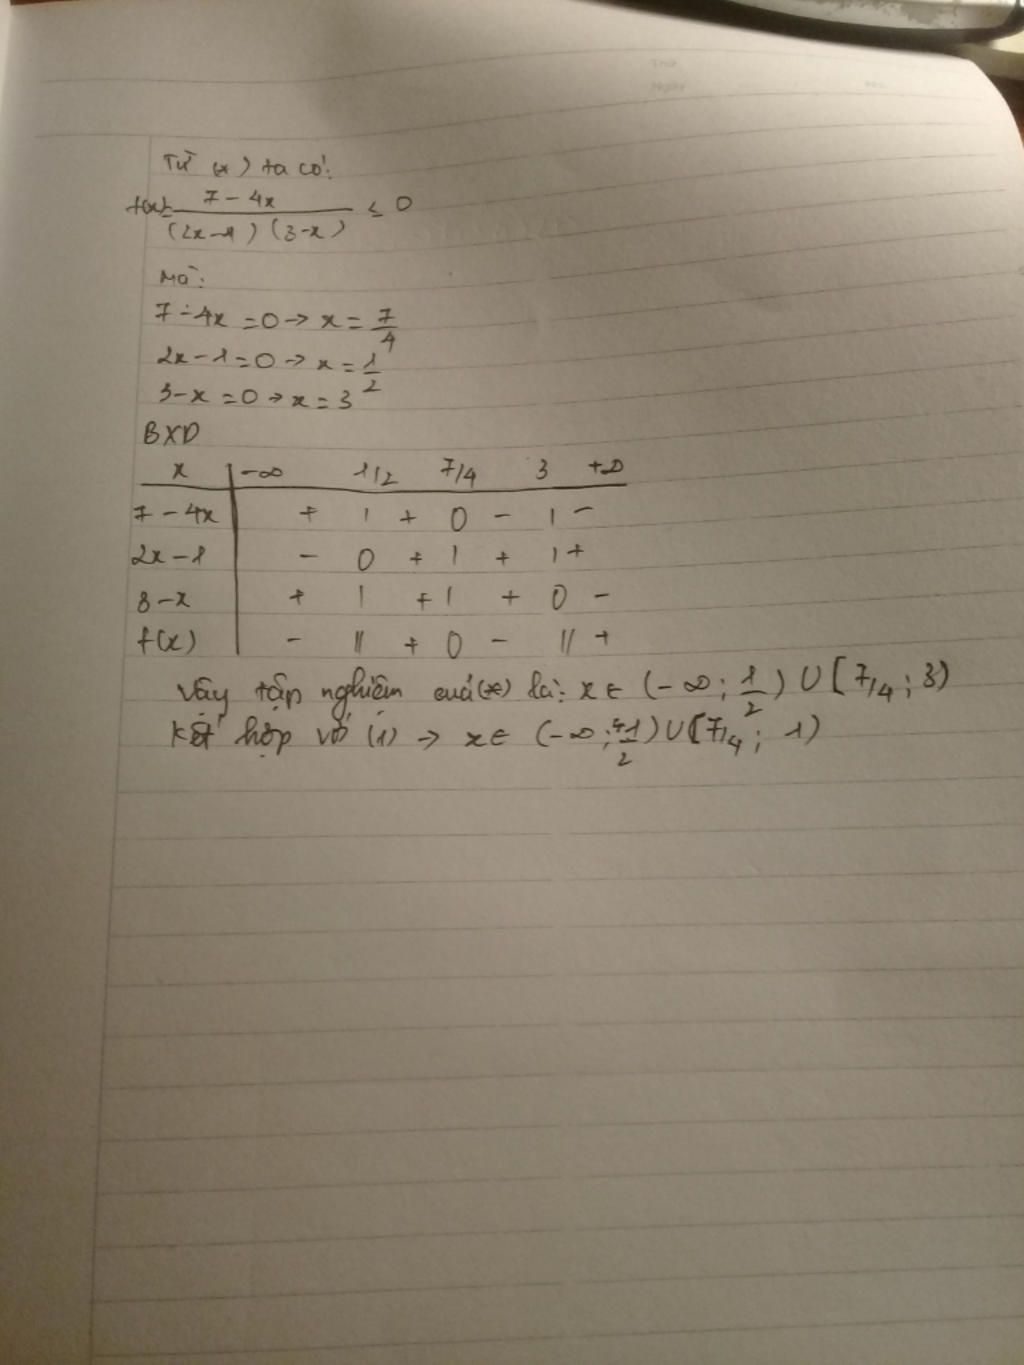 Thứ
Ngày
No.
Từ (*) ta có:
f(x) = \frac{7 - 4x}{(2x-1)(3-x)} ≤ 0
Mà:
7 - 4x = 0 → x = \frac{7}{4}
2x - 1 = 0 → x = \frac{1}{2}
3 - x = 0 → x = 3
BXD
x | -∞ 1/2 7/4 3 +∞
7 - 4x | + | + 0 - | -
2x - 1 | - 0 + | + | +
3 - x | + | + | + 0 -
f(x) | - || + 0 - || +
Vậy tập nghiệm của (*) là: x ∈ (-∞; \frac{1}{2}) ∪ [7/4; 3)
Kết hợp với (1) → x ∈ (-∞; \frac{1}{2}) ∪ [7/4; 1)